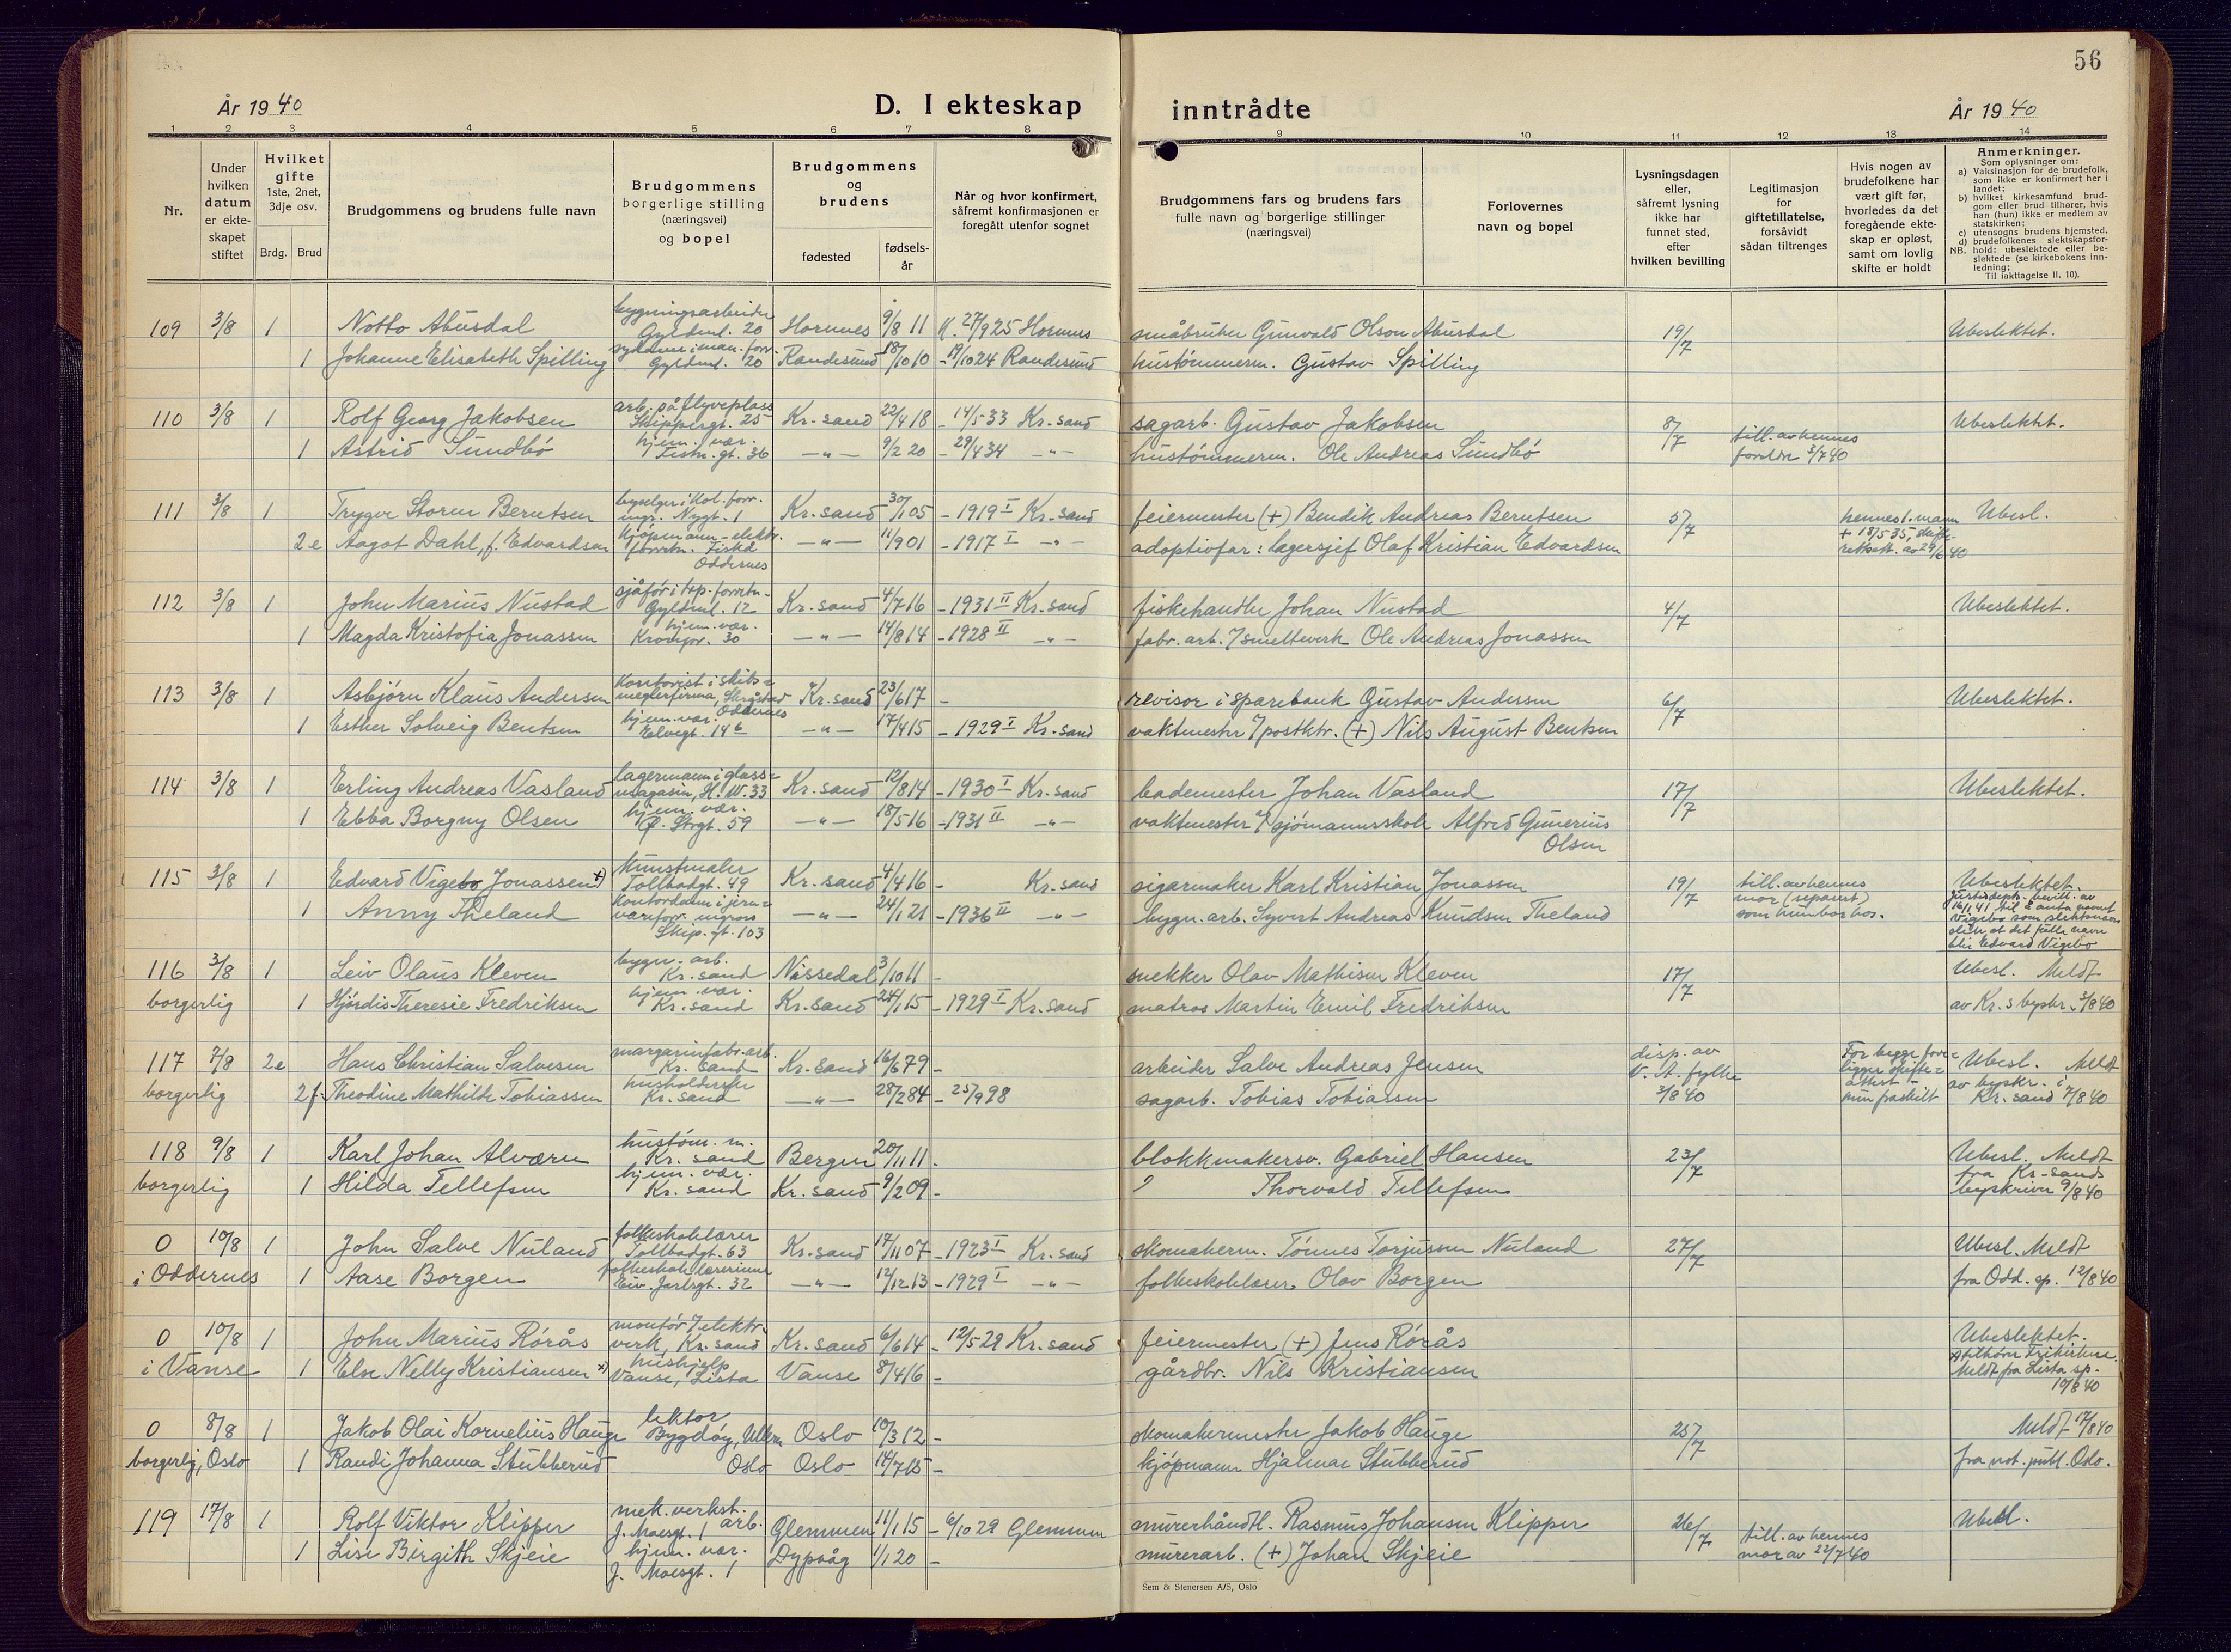 56
År 1940
D. I ekteskap inntrådte
År 1940
1 2 3 4 5 6 7 8 9 10 11 12 13 14
Nr.
Under hvilken datum er ekteskapet stiftet
Hvilket gifte 1ste, 2net, 3dje osv.
Brdg. Brud
Brudgommens og brudens fulle navn
Brudgommens borgerlige stilling (næringsvei) og bopel
Brudgommens og brudens
fødested
fødselsår
Når og hvor konfirmert, såfremt konfirmasjonen er foregått utenfor sognet
Brudgommens fars og brudens fars fulle navn og borgerlige stillinger (næringsvei)
Forlovernes navn og bopel
Lysningsdagen eller, såfremt lysning ikke har funnet sted, efter hvilken bevilling
Legitimasjon for giftetillatelse, forsåvidt sådan tiltrenges
Hvis nogen av brudefolkene har vært gift før, hvorledes da det foregående ekteskap er opløst, samt om lovlig skifte er holdt
Anmerkninger.
Som oplysninger om:
a) Vaksinasjon for de brudefolk, som ikke er konfirmert her i landet;
b) hvilket kirkesamfund brudgom eller brud tilhører, hvis han (hun) ikke er medlem av statskirken;
c) utensogns brudens hjemsted.
d) brudefolkenes slektskapsforhold: ubeslektede eller beslektede (se kirkebokens innledning;
NB.
Til iakttagelse II, 10).
109 3/8 1 Notto Abusdal bygningsarbeider Gyldenl. 20 Hornnes 9/8 11 K. 27/9 25 Hornnes småbruker Gunvald Olson Abusdal 19/7 Ubeslektet.
1 Johanne Elisabeth Spilling Gyldenl. 20 Randesund 18/10 10 - 19/10 24 Randesund hustømmerm. Gustav Spilling
110 3/8 1 Rolf Georg Jakobsen arb. på flyveplass Skippergt. 25 Kr.sand 22/4 18 - 14/5 33 Kr.sand sagarb. Gustav Jakobsen 8/7 till. av hennes foreldre 3/7 40 Ubeslektet.
1 Astrid Sundbø hjem. vær. 36 —"— 9/2 20 - 29/4 34 -"- hustømmerm. Ole Andreas Sundbø
111 3/8 1 Trygve Storm Berntsen Nygt. 1 Kr.sand 30/1 05 - 1919 I Kr.sand feiermester (+) Bendik Andreas Berntsen 5/7 hennes 1. mann + 18/5 35, Ubesl.
2e Aagot Dahl, f. Edvardsen Kjøpmann - elektr. forretn. Fiskå Oddernes —"— 11/9 01 - 1917 I -"- adoptivfar: lagersjef Olaf Kristian Edvardsen
112 3/8 1 John Marius Nustad sjåfør i Gyldenl. 12 Kr.sand 4/7 16 - 1931 II Kr.sand fiskehandler Johan Nustad 4/7 Ubeslektet.
1 Magda Kristofia Jonassen hjem. vær. Kronpr. 30 —"— 14/8 14 - 1928 II -"- fabr. arb. smelteverk Ole Andreas Jonassen
113 3/8 1 Asbjørn Klaus Andersen Kontorist i skibsmeglerfirma, Oddernes Kr.sand 23/6 17 - revisor i sparebank Gustav Andersen 6/7 Ubeslektet.
1 Esther Solveig Bentsen hjem. vær. Elvegt. 14 b —"— 17/4 15 - 1929 I Kr.sand vaktmester postktr. (+) Nils August Bentsen
114 3/8 1 Erling Andreas Vasland lagermann i glassmagasin, H. W. 33 Kr.sand 12/8 14 - 1930 I Kr.sand bademester Johan Vasland 17/7 Ubeslektet.
1 Ebba Borgny Olsen hjem. vær. Ø. Strgt. 59 —"— 18/5 16 - 1931 II -"- vaktmester sjømannsskole Alfred Gunerius Olsen
115 3/8 1 Edvard Vigebo Jonassen x) Kunstmaler Tollbodgt. 49 Kr.sand 4/4 16 - Kr.sand sigarmaker Karl Kristian Jonassen 19/7 till. av hennes mor (separert) som hun bor hos. Ubeslektet.
1 Anny Theland Kontordame i jernvareforr. engros Skip.gt. 103 —"— 24/1 21 - 1936 II -"- bygn. arb. Syvert Andreas Knudsen Theland Justisdept. bevill. av 16/1 41 til å anta navnet Vigebo som slektsnavn slik at det fulle navn blir Edvard Vigebo
116 3/8 1 Leiv Olaus Kleven bygn. arb. Kr.sand Nissedal 3/10 11 - snekker Olav Mathisen Kleven 17/7 Ubesl. Meldt
borgerlig 1 Hjørdis Theresie Fredriksen hjem. vær. Kr.sand Kr.sand 24/1 15 - 1929 I Kr.sand matros Martin Emil Fredriksen av Kr.s byskr. 3/8 40
117 7/8 2e Hans Christian Salvesen margarinfabr.arb. Kr.sand Kr.sand 16/6 79 - arbeider Salve Andreas Jensen disp. av V. A. fylke 3/8 40 For begge foreligger skifteattest - hun fraskilt Ubesl. Meldt
borgerlig 2f. Theodine Mathilde Tobiassen husholderske Kr.sand —"— 28/2 84 - 25/9 98 sagarb. Tobias Tobiassen av byskr. i Kr.sand 7/8 40
118 9/8 1 Karl Johan Alværn hustøm. m. Kr.sand Bergen 20/11 11 - blokkmakersv. Gabriel Hansen 23/7 Ubesl. Meldt
borgerlig 1 Hilda Tellefsen hjem. vær. Kr.sand Kr.sand 9/2 09 - ? Thorvald Tellefsen fra Kr.sands byskriver 9/8 40
0 10/8 1 John Salve Nuland folkeskolelærer Tollbodgt. 63 Kr.sand 17/11 07 - 1923 I Kr.sand skomakerm. Tønnes Torjussen Nuland 27/7 Ubesl. Meldt
i Oddernes 1 Aase Borgen folkeskolelærerinne Eiv. Jarlsgt. 32 —"— 12/12 13 - 1929 I -"- folkeskolelærer Olav Borgen fra Odd. sp. 12/8 40
0 10/8 1 John Marius Rørås montør elektr. verk, Kr.sand Kr.sand 6/6 14 - 12/5 29 Kr.sand feiermester (+) Jens Rørås Ubeslektet.
i Vanse 1 Else Nelly Kristiansen x) hushjelp Vanse, Lista Vanse 8/4 16 - gårdbr. Nils Kristiansen x) tilhører Frikirken. Meldt fra Lista sp. 10/8 40
0 8/8 1 Jakob Olai Kornelius Hauge lektor Bygdøy, Ullern Oslo 10/3 12 - skomakermester Jakob Hauge 25/7 Meldt 17/8 40
borgerlig, Oslo 1 Randi Johanna Stubberud Oslo Oslo 14/7 15 - kjøpmann Hjalmar Stubberud fra not. publ. Oslo.
119 17/8 1 Rolf Viktor Klipper mek. verkst. arb. J. Moesgt. 1 Glemmen 11/1 15 - 6/10 29 Glemmen murerhåndtl. Rasmus Johansen Klipper 26/7 till. av hennes mor av 22/7 40 Ubesl.
1 Lise Birgith Skjeie hjem. vær. J. Moesgt. 1 Dypvåg 1/1 20 - murerarb. (+) Johan Skjeie
Sem & Stenersen A/S, Oslo